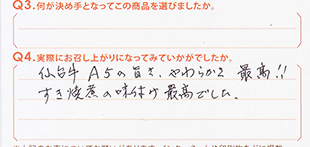 Q3.何が決め手となってこの商品を選びましたか。
Q4.実際にお召し上がりになってみていかがでしたか。
仙台牛 A5の旨さ、やわらかさ 最高!!
すき焼煮の味付け最高でした。